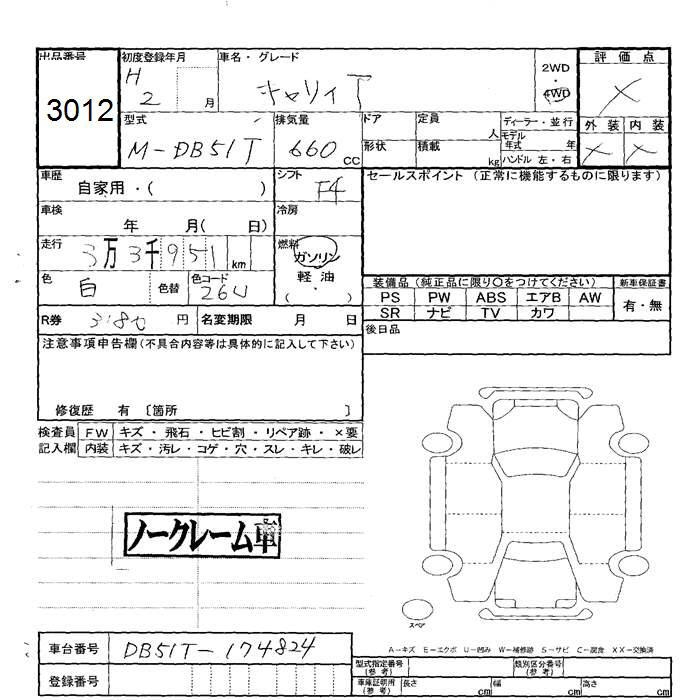 出品番号 初度登録年月 車名・グレード 2WD 評価点
3012 H 2 月 キャリィT 4WD ×
型式 排気量 ドア 定員 人 ディーラー・並行 外装 内装
M-DB51T 660cc 形状 積載 kg モデル年式 年 × ×
ハンドル 左・右
車歴 自家用・( ) シフト F4 セールスポイント (正常に機能するものに限ります)
車検 年 月( 日) 冷房
走行 3万3千951km 燃料 ガソリン
軽油・
( )
色 白 色替 色コード 26U
装備品(純正品に限り〇をつけてください) 新車保証書
PS PW ABS エアB AW 有・無
SR ナビ TV カワ
R券 円 名変期限 月 日 後日品
注意事項申告欄(不具合内容等は具体的に記入して下さい)
修復歴 有 〔箇所 〕
検査員 FW キズ・飛石・ヒビ割・リペア跡・×要
記入欄 内装 キズ・汚レ・コゲ・穴・スレ・キレ・破レ
ノークレーム車
スペア
A-キズ E-エクボ U-凹み W-補修跡 S-サビ C-腐食 XX-交換済
車台番号 DB51T-174824
登録番号
型式指定番号(参考) 類別区分番号(参考)
車庫証明用(参考) 長さ cm 幅 cm 高さ cm